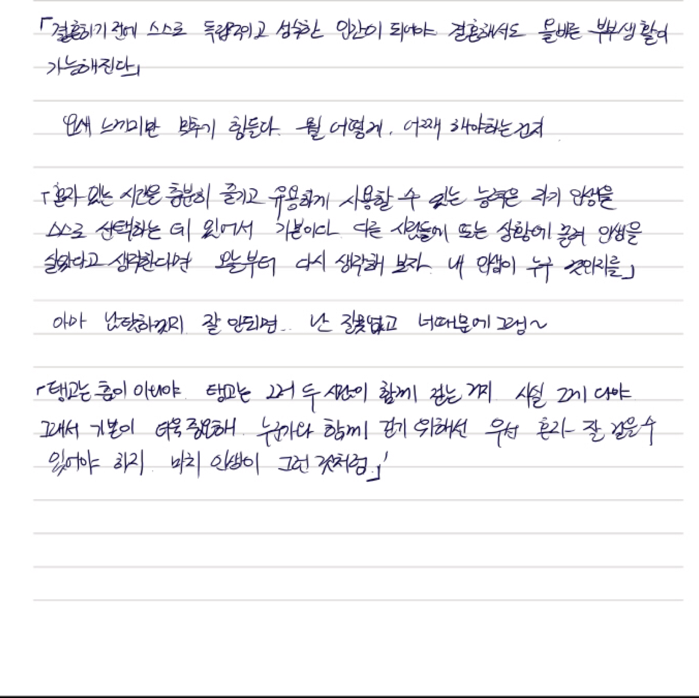 「결혼하기 전에 스스로 독립적이고 성숙한 인간이 되어야 결혼해서도 올바른 부부생활이
가능해진다」
요새 느끼지만 맞추기 힘들다. 뭘 어떻게, 어째 해야하는건지
「혼자 있는 시간을 충분히 즐기고 유용하게 사용할 수 있는 능력은 자기 인생을
스스로 선택하는 데 있어서 기본이다. 다른 사람들에 또는 상황에 끌려 인생을
살았다고 생각한다면 오늘부터 다시 생각해 보자. 내 인생이 누구 것인지를」
아마 난 잘 안되면.. 난 잘못없고 너때문에 그럼~
「탱고는 춤이 아니야. 탱고는 그저 두 사람이 함께 걷는 거지. 사실 그게 다야
그래서 기본이 더욱 중요해. 누군가와 함께 걷기 위해선 우선 혼자 잘 걸을 수
있어야 하지. 마치 인생이 그런 것처럼.」